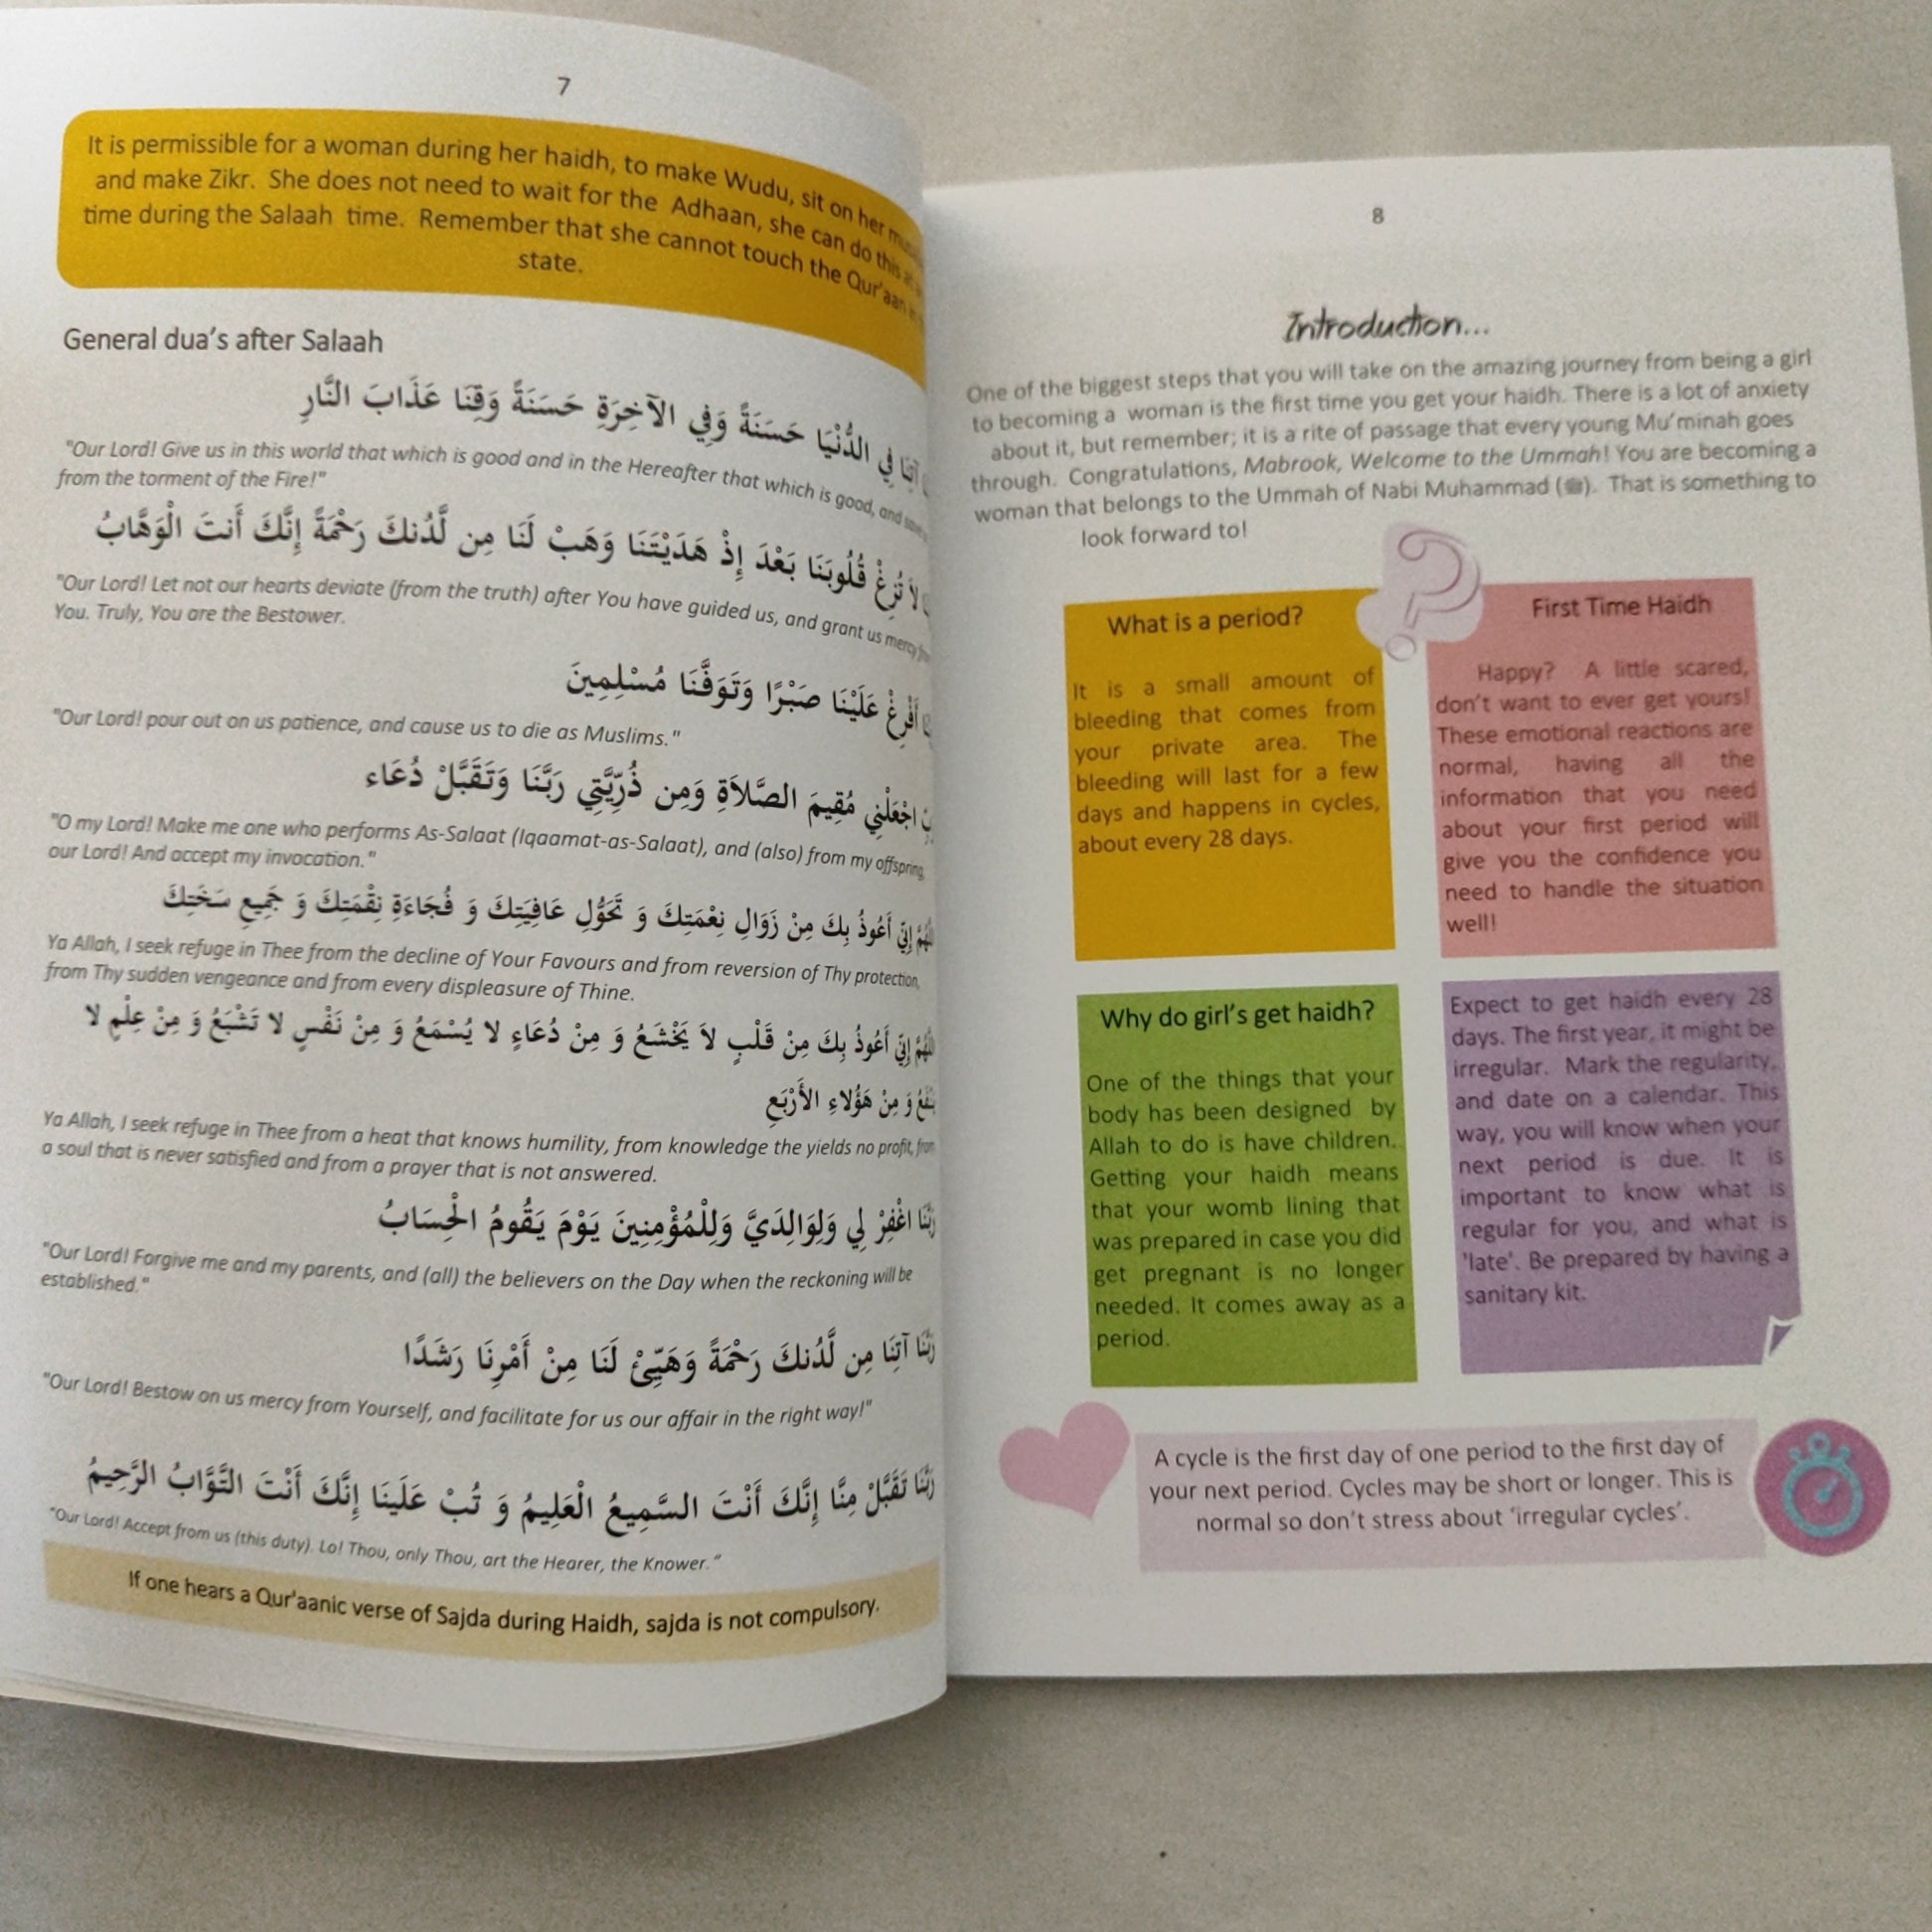 7
It is permissible for a woman during her haidh, to make Wudu, sit on her
and make Zikr. She does not need to wait for the Adhaan, she can do this
time during the Salaah time. Remember that she cannot touch the Qur'aan
state.
General dua's after Salaah
آتِنَا فِي الدُّنْيَا حَسَنَةً وَفِي الآخِرَةِ حَسَنَةً وَقِنَا عَذَابَ النَّارِ
"Our Lord! Give us in this world that which is good and in the Hereafter that which is good, and save
from the torment of the Fire!"
لاَ تُزِغْ قُلُوبَنَا بَعْدَ إِذْ هَدَيْتَنَا وَهَبْ لَنَا مِن لَّدُنكَ رَحْمَةً إِنَّكَ أَنتَ الْوَهَّابُ
"Our Lord! Let not our hearts deviate (from the truth) after You have guided us, and grant us mercy from
You. Truly, You are the Bestower.
أَفْرِغْ عَلَيْنَا صَبْرًا وَتَوَفَّنَا مُسْلِمِينَ
"Our Lord! pour out on us patience, and cause us to die as Muslims."
اجْعَلْنِي مُقِيمَ الصَّلاَةِ وَمِن ذُرِّيَّتِي رَبَّنَا وَتَقَبَّلْ دُعَاء
"O my Lord! Make me one who performs As-Salaat (Iqaamat-as-Salaat), and (also) from my offspring,
our Lord! And accept my invocation."
إِنِّي أَعُوذُ بِكَ مِنْ زَوَالِ نِعْمَتِكَ وَ تَحَوُّلِ عَافِيَتِكَ وَ فُجَاءَةِ نِقْمَتِكَ وَ جَمِيعِ سَخَتِكَ
Ya Allah, I seek refuge in Thee from the decline of Your Favours and from reversion of Thy protection,
from Thy sudden vengeance and from every displeasure of Thine.
إِنِّي أَعُوذُ بِكَ مِنْ قَلْبٍ لاَ يَخْشَعُ وَ مِنْ دُعَاءٍ لا يُسْمَعُ وَ مِنْ نَفْسٍ لا تَشْبَعُ وَ مِنْ عِلْمٍ لا
وَ مِنْ هَؤُلاءِ الأَرْبَعِ
Ya Allah, I seek refuge in Thee from a heat that knows humility, from knowledge the yields no profit, from
a soul that is never satisfied and from a prayer that is not answered.
رَبَّنَا اغْفِرْ لِي وَلِوَالِدَيَّ وَلِلْمُؤْمِنِينَ يَوْمَ يَقُومُ الْحِسَابُ
"Our Lord! Forgive me and my parents, and (all) the believers on the Day when the reckoning will be
established."
رَبَّنَا آتِنَا مِن لَّدُنكَ رَحْمَةً وَهَيِّئْ لَنَا مِنْ أَمْرِنَا رَشَدًا
"Our Lord! Bestow on us mercy from Yourself, and facilitate for us our affair in the right way!"
رَبَّنَا تَقَبَّلْ مِنَّا إِنَّكَ أَنْتَ السَّمِيعُ الْعَلِيمُ وَ تُبْ عَلَينَا إِنَّكَ أَنْتَ التَّوَّابُ الرَّحِيمُ
"Our Lord! Accept from us (this duty). Lo! Thou, only Thou, art the Hearer, the Knower."
If one hears a Qur'aanic verse of Sajda during Haidh, sajda is not compulsory.
8
Introduction...
One of the biggest steps that you will take on the amazing journey from being a girl
to becoming a woman is the first time you get your haidh. There is a lot of anxiety
about it, but remember; it is a rite of passage that every young Mu'minah goes
through. Congratulations, Mabrook, Welcome to the Ummah! You are becoming a
woman that belongs to the Ummah of Nabi Muhammad (ﷺ). That is something to
look forward to!
What is a period?
It is a small amount of
bleeding that comes from
your private area. The
bleeding will last for a few
days and happens in cycles,
about every 28 days.
First Time Haidh
Happy? A little scared,
don't want to ever get yours!
These emotional reactions are
normal, having all the
information that you need
about your first period will
give you the confidence you
need to handle the situation
well!
Why do girl's get haidh?
One of the things that your
body has been designed by
Allah to do is have children.
Getting your haidh means
that your womb lining that
was prepared in case you did
get pregnant is no longer
needed. It comes away as a
period.
Expect to get haidh every 28
days. The first year, it might be
irregular. Mark the regularity,
and date on a calendar. This
way, you will know when your
next period is due. It is
important to know what is
regular for you, and what is
'late'. Be prepared by having a
sanitary kit.
A cycle is the first day of one period to the first day of
your next period. Cycles may be short or longer. This is
normal so don't stress about 'irregular cycles'.